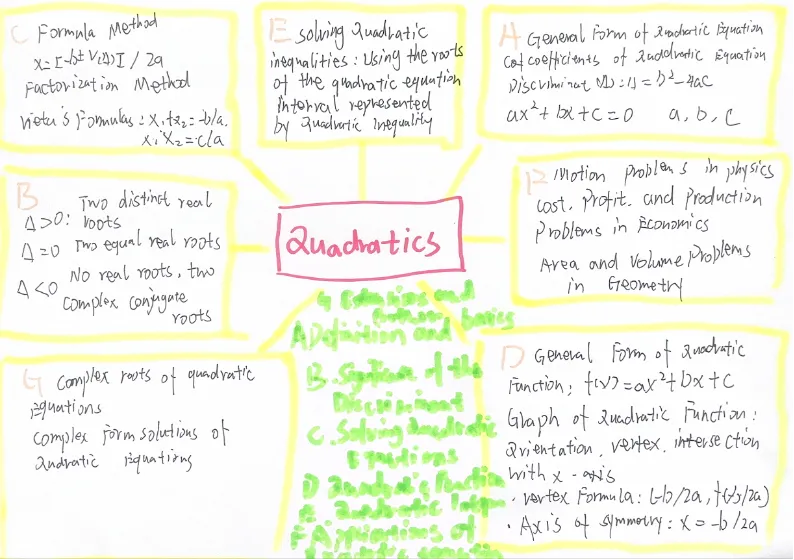 C Formula Method
x=[-b±√(Δ)]/2a
Factorization Method
Vieta's Formulas: x₁+x₂=-b/a.
x₁x₂=c/a
E solving Quadratic
inequalities: Using the roots
of the quadratic equation
interval represented
by Quadratic Inequality
A General Form of Quadratic Equation
coefficients of Quadratic Equation
Discriminat (Δ): Δ=b²-4ac
ax²+bx+c=0 a, b, c
B Two distinct real
Δ>0: roots
Δ=0 Two equal real roots
Δ<0 No real roots, two
complex conjugate
roots
Quadratics
F Motion problems in physics
cost. Profit. and Production
Problems in Economics
Area and Volume Problems
in Geometry
G complex roots of quadratic
Equations
complex form solutions of
Quadratic Equations
G Extensions and
basics
A Definition and
B. of the
Discriminant
C. Solving Quadratic
Equations
D Quadratic Function
E Quadratic
F Applications of
D General Form of Quadratic
Function; f(x)=ax²+bx+c
Graph of Quadratic Function:
Orientation, vertex, intersection
with x-axis
· vertex Formula: (-b/2a, f(-b/2a)
· Axis of symmetry: x=-b/2a